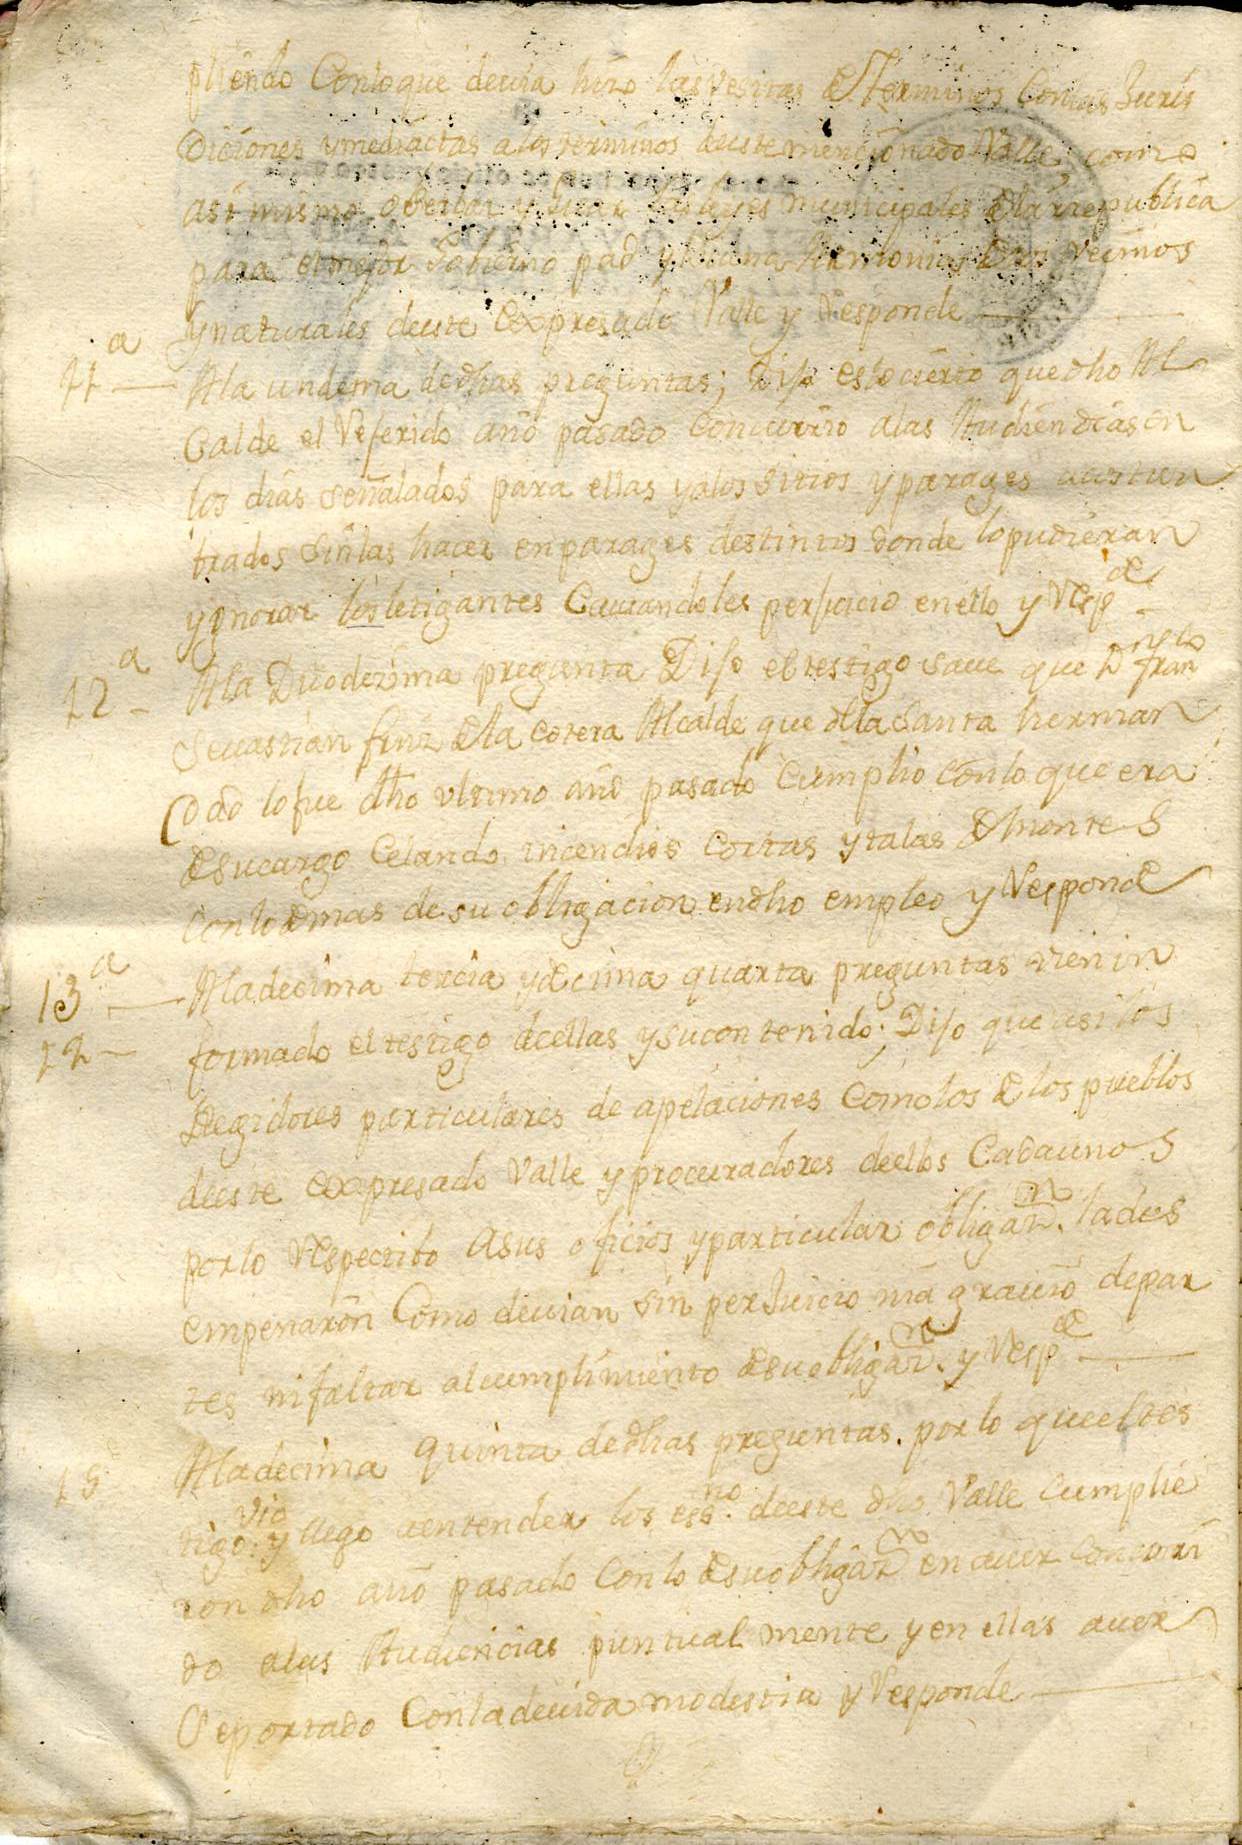 pliendo Conloque devia hizo las vesitas de terminos Con las Juris
Diciones ynmediactas a los terminos deeste mencionado Valle, como
asi mismo observar y las leyes municipales de la rrepublica
para el mejor Gobierno paz y Armonia de los Vecinos
y naturales deeste expresado Valle y Responde
11a Ala undezima dedhas preguntas; Dijo es lo cierto que dho Al
Calde el Referido año pasado Concurrio alas Audiencias en
los dias señalados para ellas y alos sitios y parages acostun
brados sin las hacer en parages destintos donde lo pudieran
ygnorar los letigantes Causandoles perjuicio en ello y Respde
12a Ala Duodezima pregunta Dijo el testigo save que Dn Franco
Sevastian frnz de la Cotera Alcalde que de la Santa herman
Dad lo fue dho ultimo año pasado Cumplio con lo que era
desucargo Celando incendios cortas y talas de monteS
con lo demas de su obligacion en dho empleo y Responde
13a Ala decima tercia y decima quarta preguntas vien in
14 formado el testigo deellas y su contenido; Dijo que asi los
Regidores particulares de apelaciones Como los de los pueblos
deeste expresado Valle y procuradores deellos Cada unoS
por lo Respectibo Asus oficios y particular obligazn. lades
empeñaron Como devian sin perJuicio ni agravio depar
tes ni faltar al cumplimiento desu obligazn. y Respde
15 Ala decima quinta dedhas preguntas. por lo que el tes
tigo vio y llego aentender los essnos. deeste dho Valle Cumplie
ron dho año pasado Con lo desu obligazn en aver concurri
do alas Audiencias puntualmente y en ellas aver
Se portado Con la devida modestia y Responde